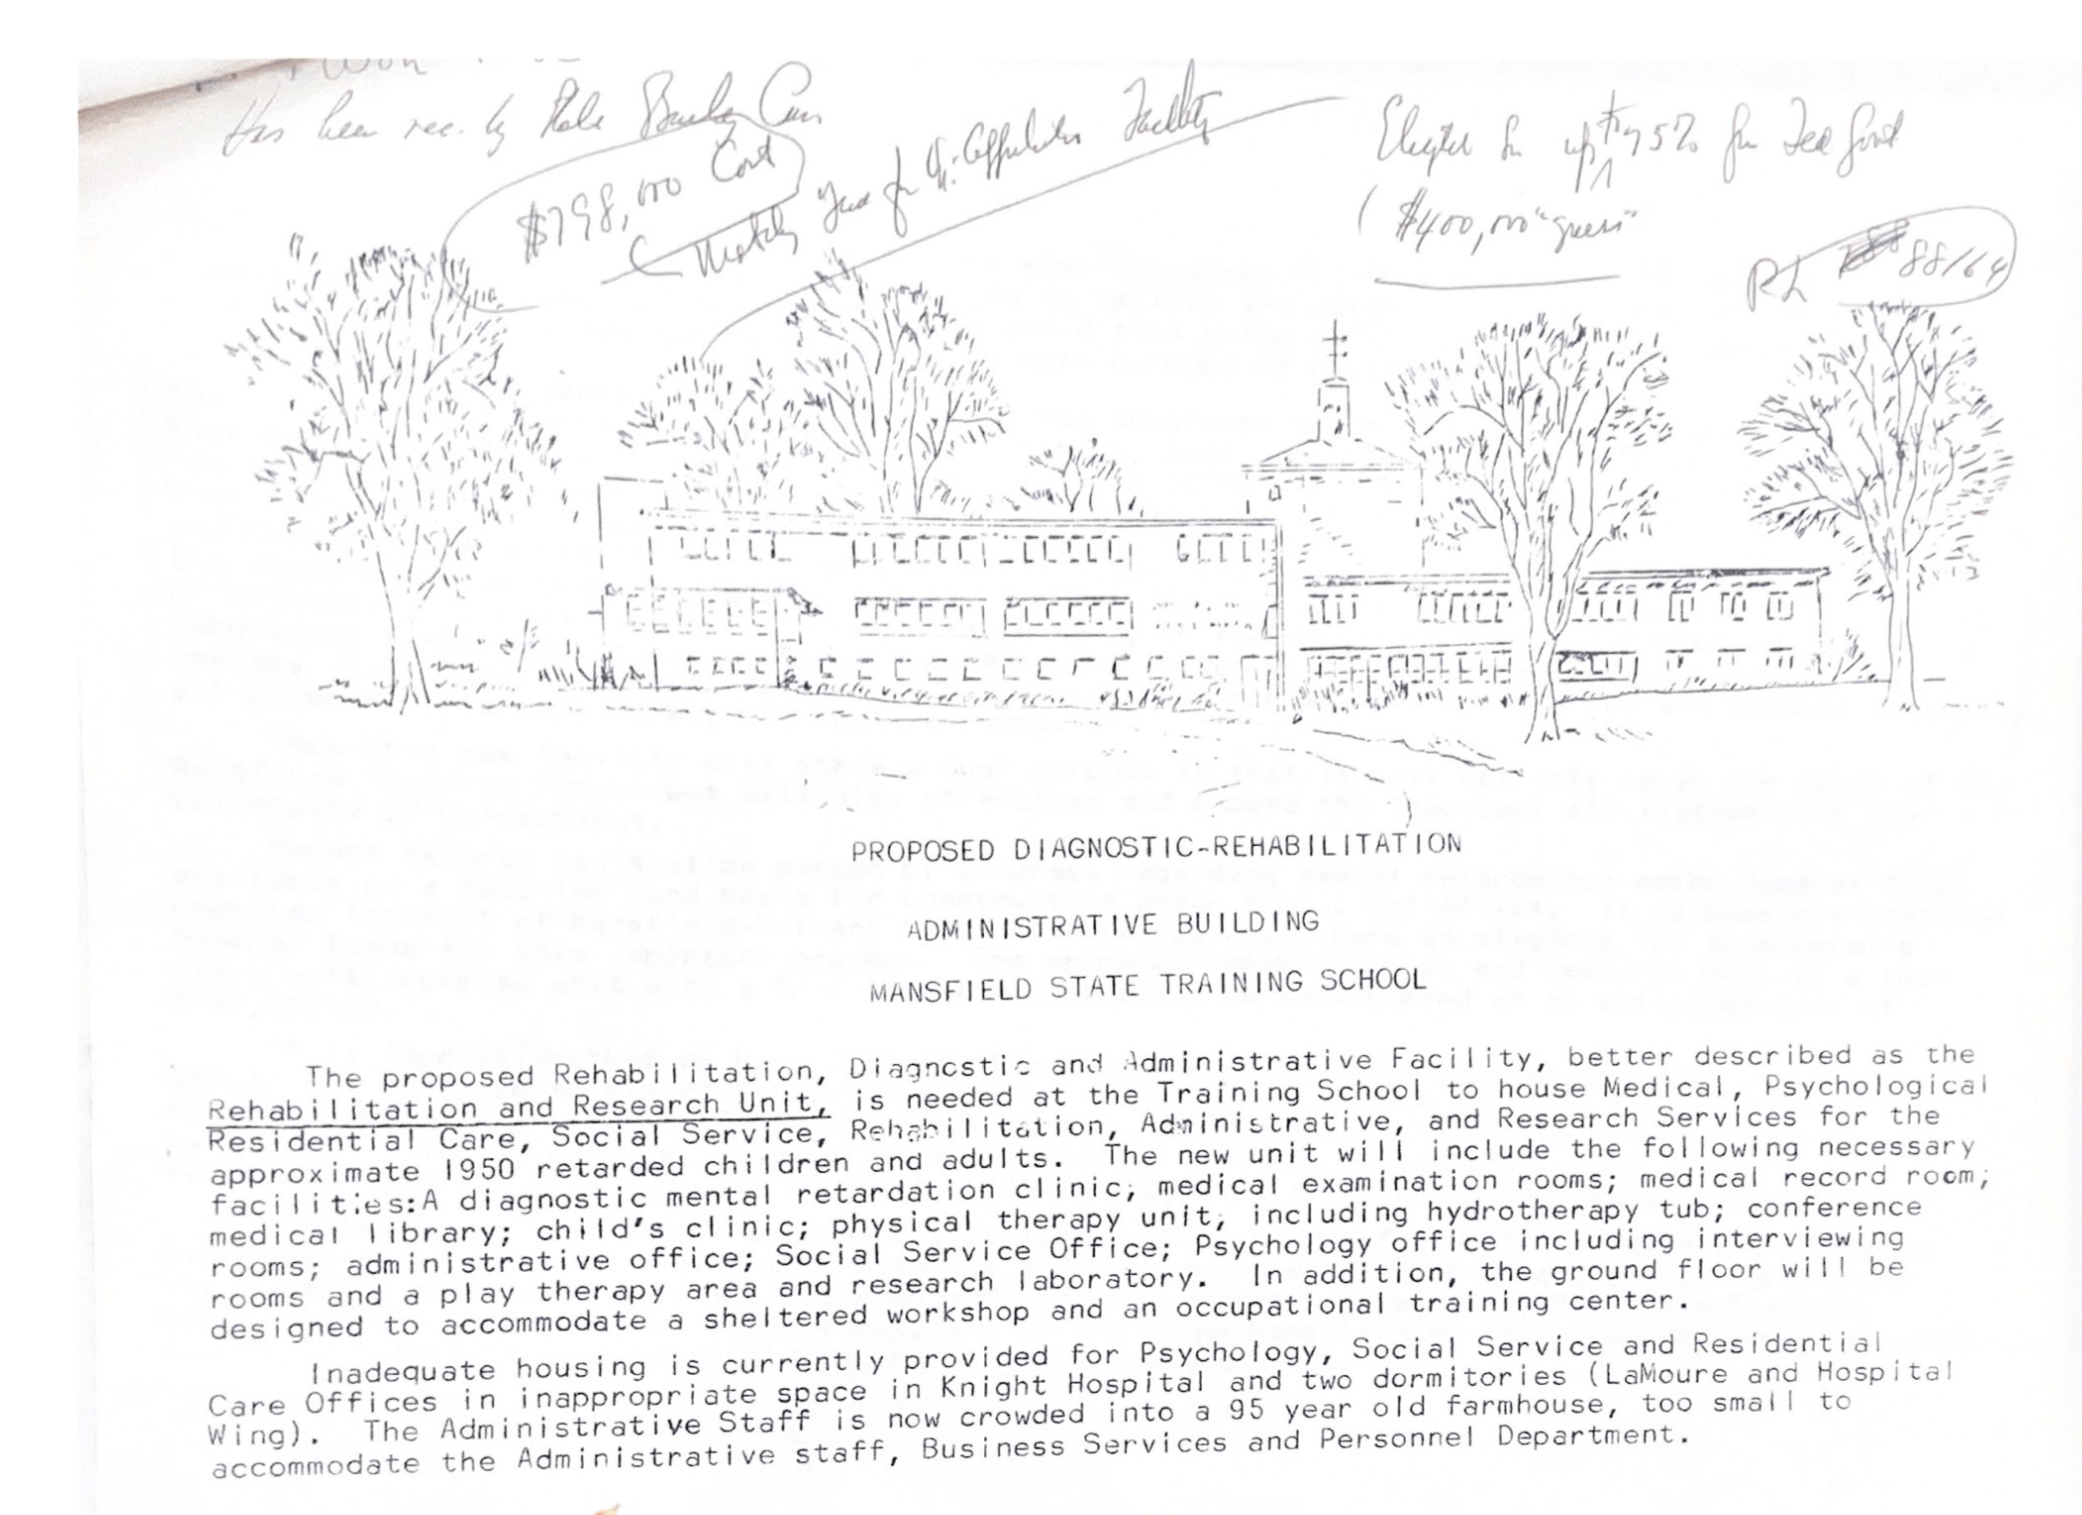 Has been rec. by
$798,000 Cost
for Facility
up to 75% for Fed Govt
($400,000 "guess"
PL 88/164
PROPOSED DIAGNOSTIC-REHABILITATION
ADMINISTRATIVE BUILDING
MANSFIELD STATE TRAINING SCHOOL
The proposed Rehabilitation, Diagnostic and Administrative Facility, better described as the
Rehabilitation and Research Unit, is needed at the Training School to house Medical, Psychological
Residential Care, Social Service, Rehabilitation, Administrative, and Research Services for the
approximate 1950 retarded children and adults. The new unit will include the following necessary
facilities:A diagnostic mental retardation clinic; medical examination rooms; medical record room;
medical library; child's clinic; physical therapy unit, including hydrotherapy tub; conference
rooms; administrative office; Social Service Office; Psychology office including interviewing
rooms and a play therapy area and research laboratory. In addition, the ground floor will be
designed to accommodate a sheltered workshop and an occupational training center.
Inadequate housing is currently provided for Psychology, Social Service and Residential
Care Offices in inappropriate space in Knight Hospital and two dormitories (LaMoure and Hospital
Wing). The Administrative Staff is now crowded into a 95 year old farmhouse, too small to
accommodate the Administrative staff, Business Services and Personnel Department.